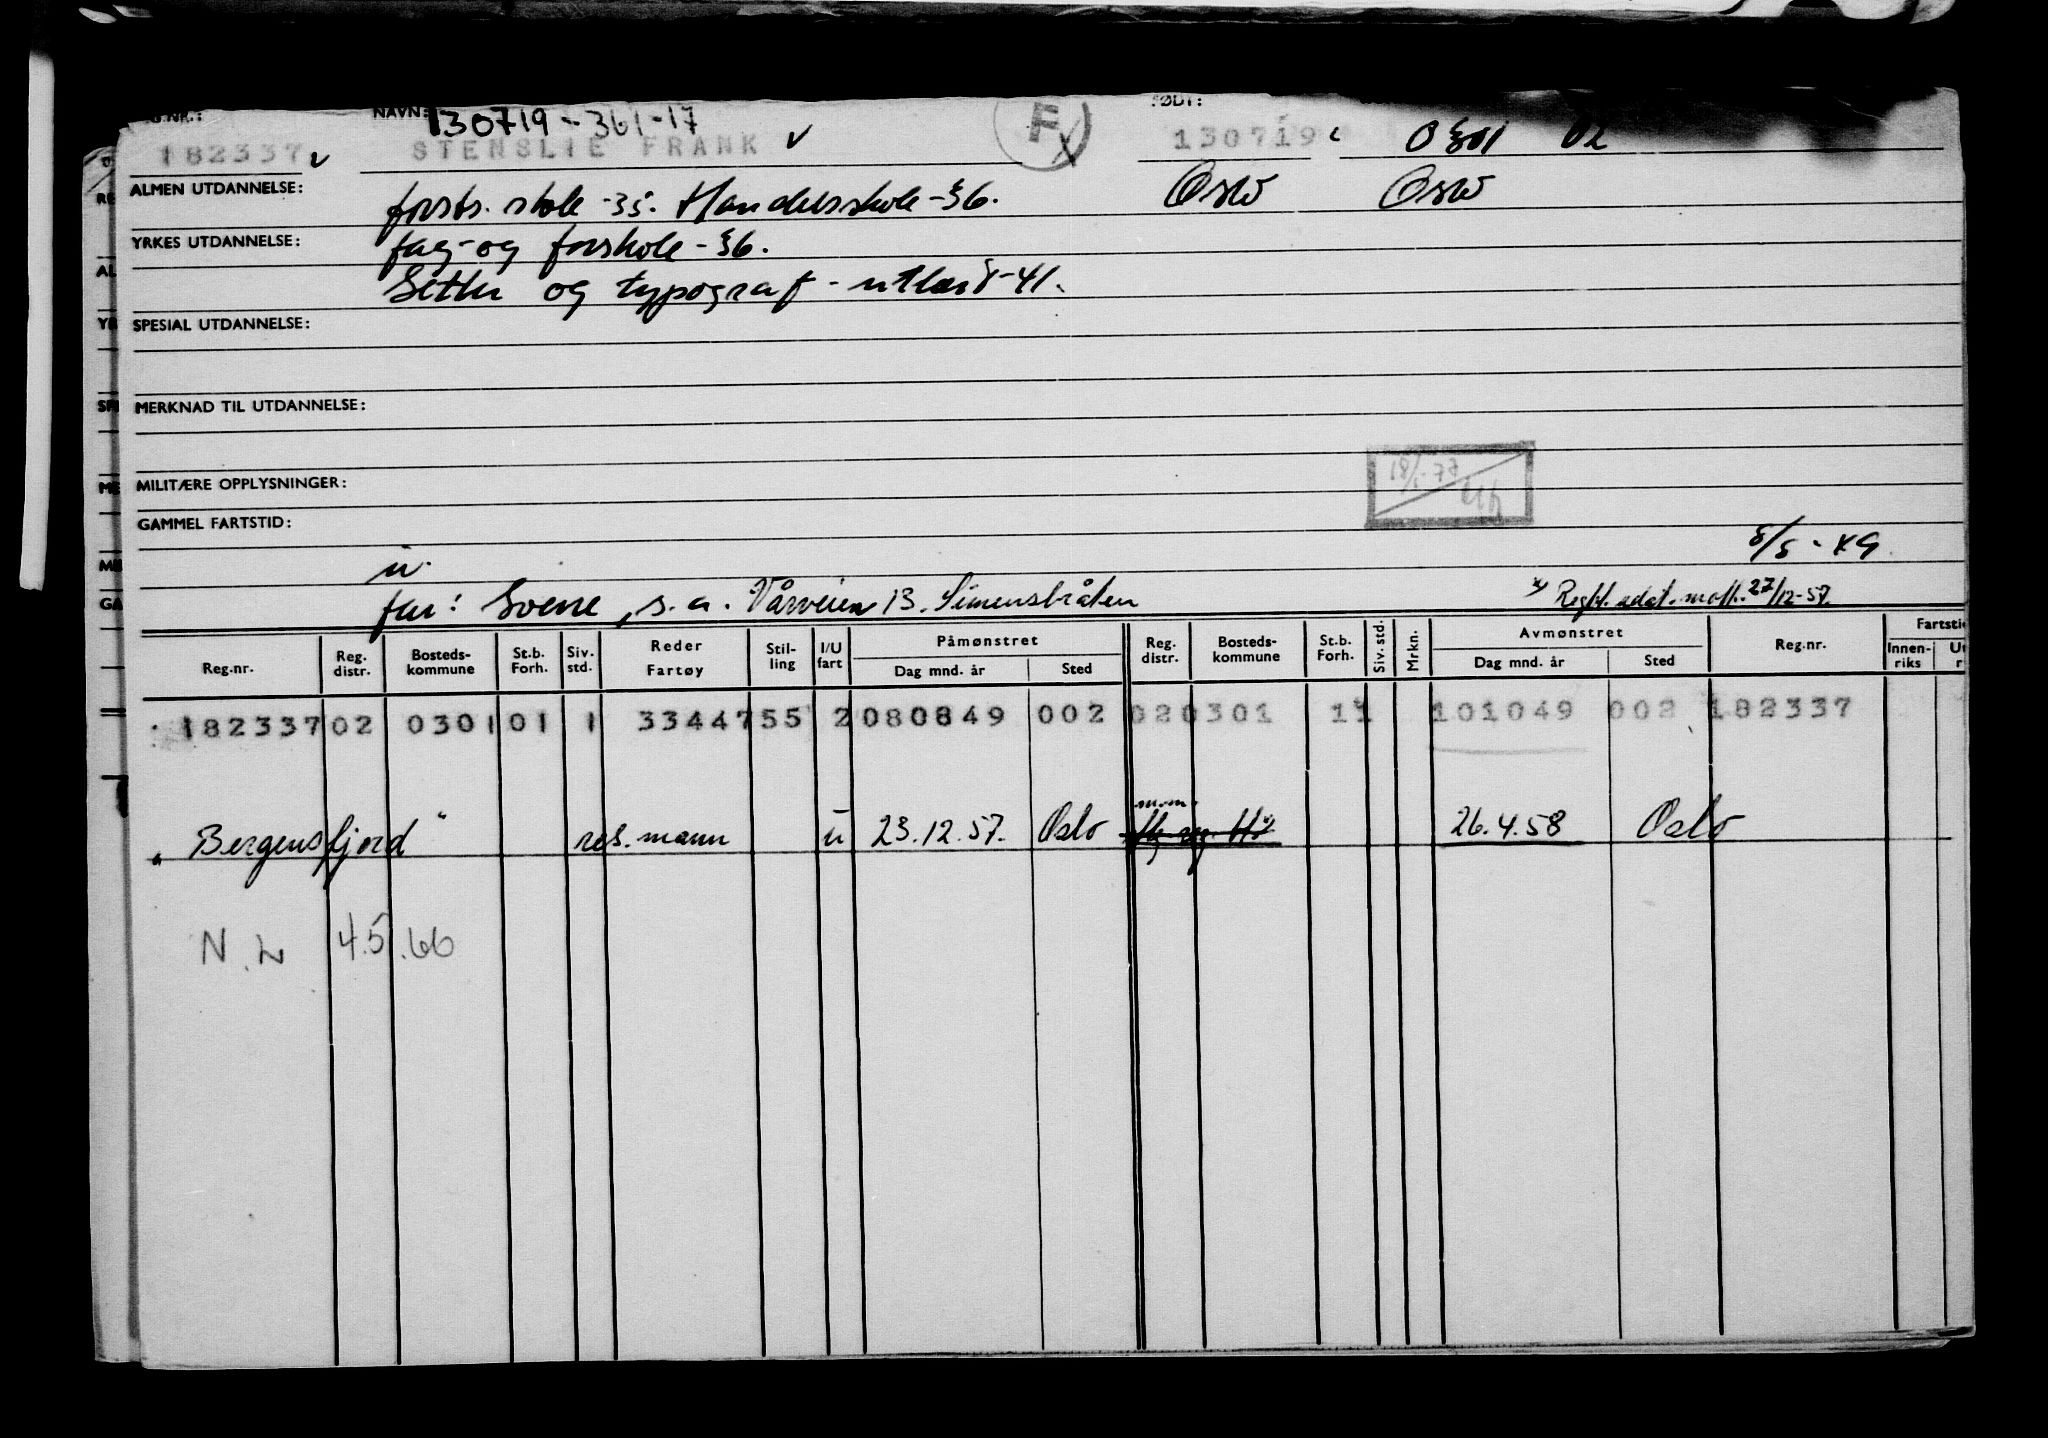 NAVN: 130719-361-17 F FØDT:
182337 STENSLIE FRANK 130719 0301 02
ALMEN UTDANNELSE: forts. skole -35. Handelsskole -36. Oslo Oslo
YRKES UTDANNELSE: fag- og forskole -36.
Setter og typograf - utlærd -41.
SPESIAL UTDANNELSE:
MERKNAD TIL UTDANNELSE:
MILITÆRE OPPLYSNINGER: 18/1-77
GAMMEL FARTSTID:
u.
far: Sverre, s.a. Vårveien 13. Simensbråten
x) 27/12-57.
Reg.nr. Reg. distr. Bosteds-kommune St.b. Forh. Siv. std. Reder Fartøy Stil-ling I/U fart Påmønstret Dag mnd. år Sted Reg. distr. Bosteds-kommune St.b. Forh. Siv. std. Mrkn. Avmønstret Dag mnd. år Sted Reg.nr. Innen-riks
182337 02 0301 01 1 33447 55 2 080849 002 02 0301 1 1 101049 002 182337
"Bergensfjord" res. mann u 23.12.57. Oslo m.m. 26.4.58 Oslo
N.L 4.5.66